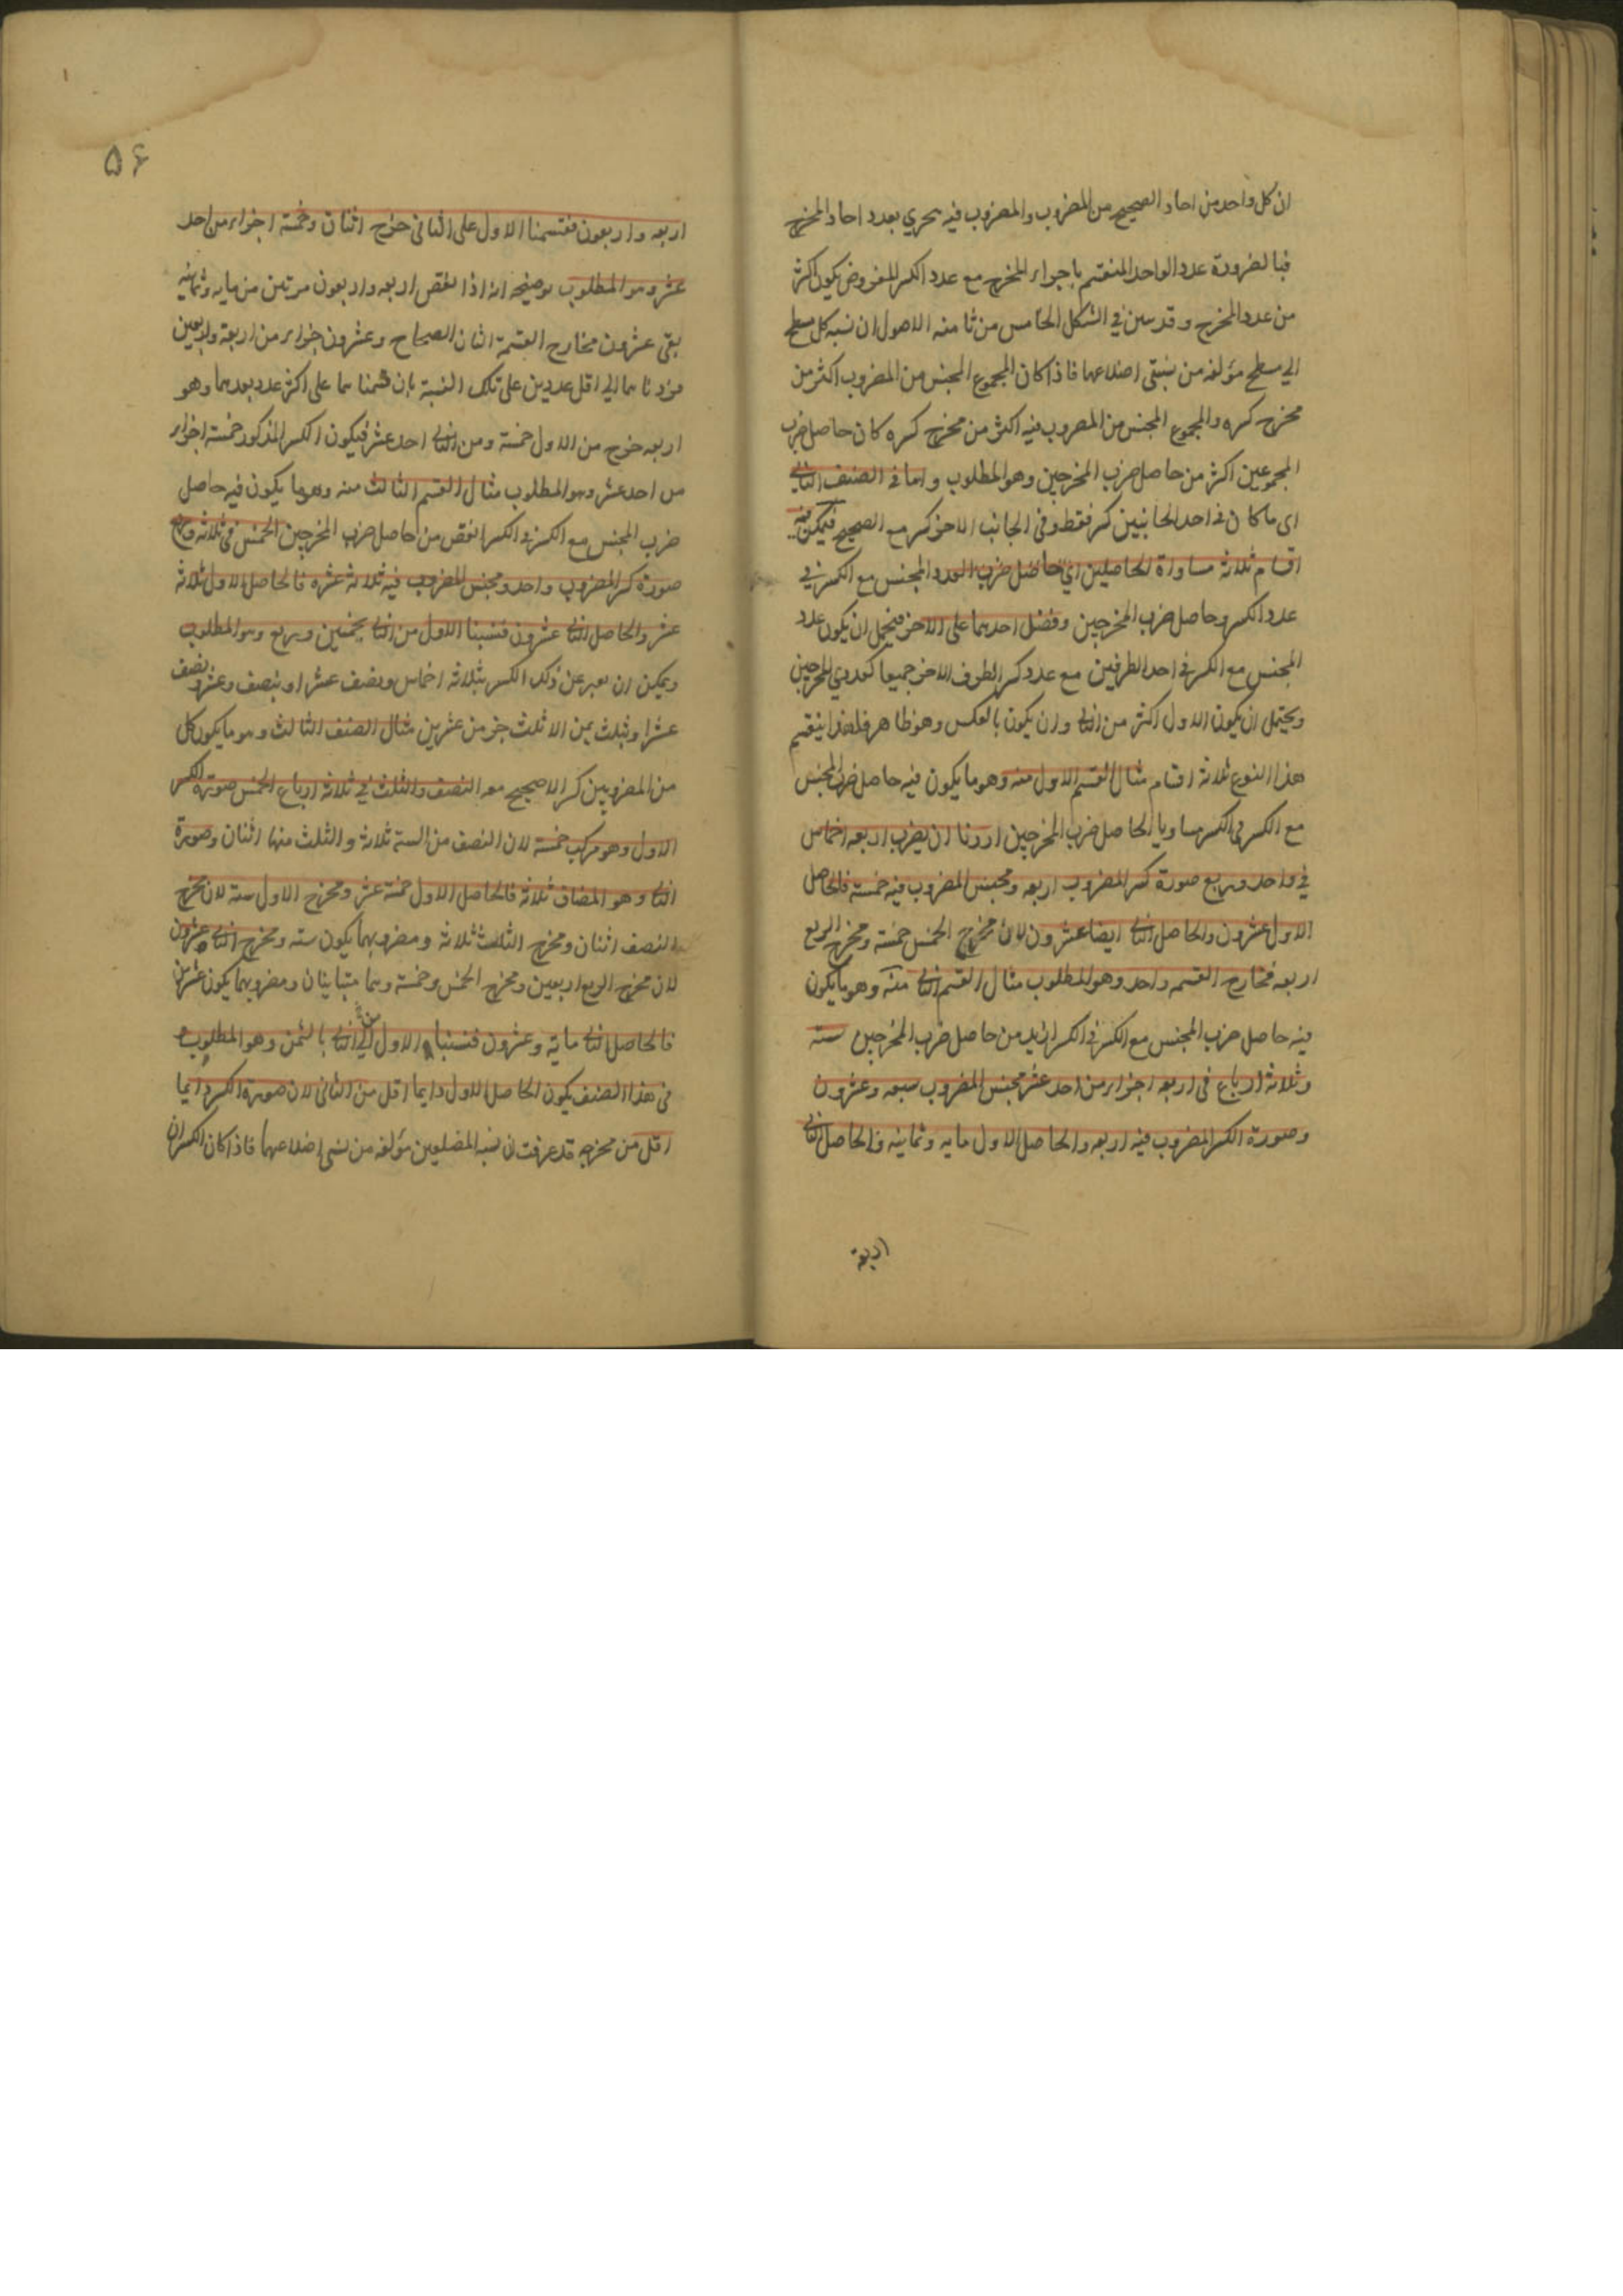 ان كل واحد من احاد الصحيح من المضروب والمضروب فيه يحري بعدد احاد المخرج
فبالضرورة عدد الواحد المنقسم باجزاء المخرج مع عدد الكسر المفروض يكون اكثر
من عدد المخرج وقد تبين في الشكل الخامس من ثامنه الاصول ان نسبه كل مسطح
الي مسطح مؤلفه من نسبتي اضلاعهما فاذا كان المجموع المجنس من المضروب اكثر من
مخرج كسره والمجموع المجنس من المضروب فيه اكثر من مخرج كسره كان حاصل ضرب
المجموعين اكثر من حاصل ضرب المخرجين وهو المطلوب واما في الصنف الثاني
اى ما كان فى احد الجانبين كسر فقط وفى الجانب الاخر كسر مع الصحيح فيمكن فيه
اقسام ثلاثه مساواة الحاصلين اي حاصل ضرب العدد المجنس مع الكسر في
عدد الكسر وحاصل ضرب المخرجين وفضل احدهما على الاخر فيحتمل ان يكون عدد
المجنس مع الكسر فى احد الطرفين مع عدد كسر الطرف الاخر جميعا كعددي المخرجين
ويحتمل ان يكون الاول اكثر من الثاني وان يكون بالعكس وهو ظاهر فلهذا ينقسم
هذا النوع ثلاثه اقسام مثال القسم الاول منه وهو ما يكون فيه حاصل ضرب المجنس
مع الكسر في الكسر مساويا لحاصل ضرب المخرجين اردنا ان يضرب اربعه اخماس
في واحد وربع صورة كسر المضروب اربعه ومجنس المضروب فيه خمسة فالحاصل
الاول عشرون والحاصل الثاني ايضا عشرون لان مخرج الخمس خمسة ومخرج الربع
اربعه فخارج القسمه واحد وهو المطلوب مثال القسم الثاني منه وهو ما يكون
فيه حاصل ضرب المجنس مع الكسر فى الكسر ازيد من حاصل ضرب المخرجين سته
وثلاثة ارباع فى اربعه اجزاء من احد عشر مجنس المضروب سبعه وعشرون
وصورة الكسر المضروب فيه اربعه والحاصل الاول مايه وثمانيه والحاصل الثاني
اربعة
۵۶
اربعه واربعون فقسمنا الاول على الثانى خرج اثنان وخمسة اجزاء من احد
عشر وهو المطلوب توضيحه انه اذا نقص اربعه واربعون مرتين من مايه وثمانيه
بقى عشرون فخارج القسمة اثنان الصحاح وعشرون جزاء من اربعة واربعين
فرددناهما الي اقل عددين على تلك النسبة بان قسمناهما على اكثر عدد يعدهما وهو
اربعه خرج من الاول خمسة ومن الثاني احد عشر فيكون الكسر المذكور خمسة اجزاء
من احد عشر وهو المطلوب مثال القسم الثالث منه وهو ما يكون فيه حاصل
ضرب المجنس مع الكسر فى الكسر انقص من حاصل ضرب المخرجين الخمس فى ثلاثه وربع
صورة كسر المضروب واحد ومجنس المضروب فيه ثلاثة عشره فالحاصل الاول ثلاثة
عشر والحاصل الثاني عشرون فنسبنا الاول من الثاني بخمسين وربع وهو المطلوب
ويمكن ان يعبر عن ذلك الكسر بثلاثه اخماس ونصف عشر او بنصف وعشر ونصف
عشر او بثلث الا ثلث جزء من عشرين مثال الصنف الثالث وهو ما يكون كل
من المضروبين كسر الا صحيح معه النصف والثلث في ثلاثه ارباع الخمس صورة الكسر
الاول وهو مركب خمسة لان النصف من السته ثلاثة والثلث منها اثنان وصورة
الثاني وهو المضاف ثلاثه فالحاصل الاول خمسة عشر ومخرج الاول سته لان مخرج
النصف اثنان ومخرج الثلث ثلاثه ومضروبهما يكون سته ومخرج الثاني عشرون
لان مخرج الربع اربعين ومخرج الخمس وخمسة وهما متباينان ومضروبهما يكون عشرين
فالحاصل الثاني مائه وعشرون فنسبنا الاول الي الثاني بالثمن وهو المطلوب
فى هذا الصنف يكون الحاصل الاول دايما اقل من الثانى لان صورة الكسر دايما
اقل من مخرجه قد عرفت ان نسبه المضلعين مؤلفه من نسبى اضلاعهما فاذا كان الكسران